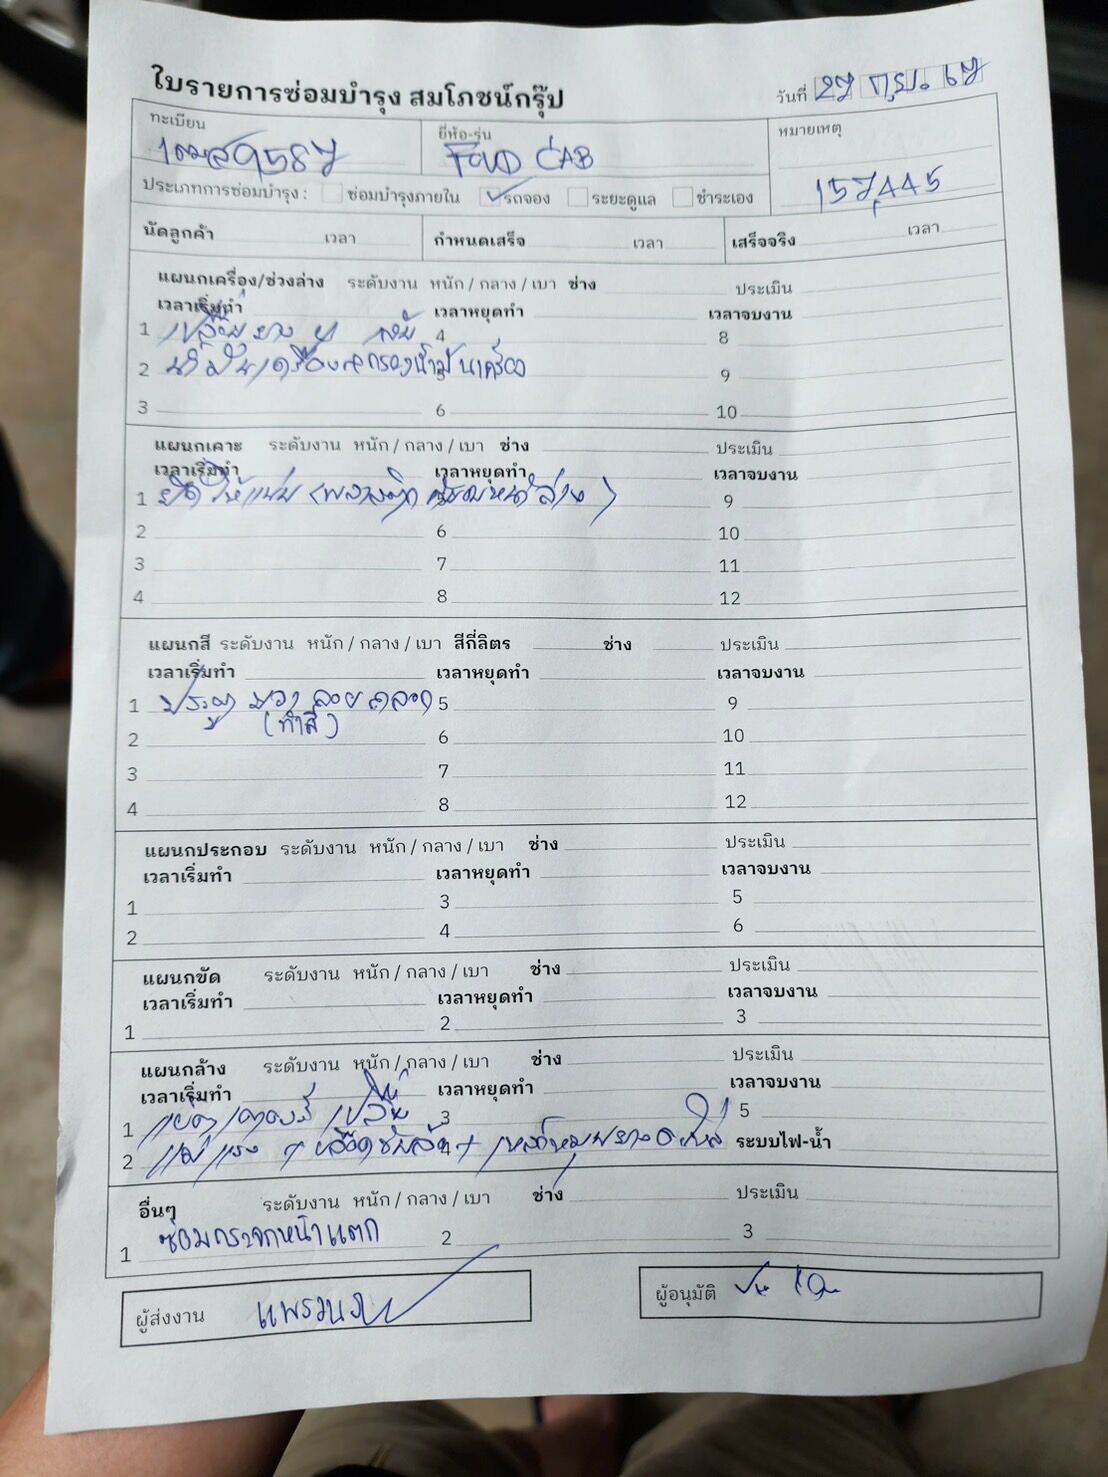 ใบรายการซ่อมบำรุง สมโภชน์กรุ๊ป
วันที่ 27 ก.ย. 67
ทะเบียน
ยี่ห้อ-รุ่น
หมายเหตุ
9587
CAB
157,445
ประเภทการซ่อมบำรุง : ซ่อมบำรุงภายใน รถจอง ระยะดูแล ชำระเอง
นัดลูกค้า เวลา กำหนดเสร็จ เวลา เสร็จจริง เวลา
แผนกเครื่อง/ช่วงล่าง ระดับงาน หนัก / กลาง / เบา ช่าง ประเมิน
เวลาเริ่มทำ เวลาหยุดทำ เวลาจบงาน
1 เปลี่ยนยาง 4 8
2 น้ำมันเครื่อง กรองน้ำมันเครื่อง 9
3 6 10
แผนกเคาะ ระดับงาน หนัก / กลาง / เบา ช่าง ประเมิน
เวลาเริ่มทำ เวลาหยุดทำ เวลาจบงาน
1 ยึดให้แน่น (พลาสติก ล่าง) 9
2 6 10
3 7 11
4 8 12
แผนกสี ระดับงาน หนัก / กลาง / เบา สีกี่ลิตร ช่าง ประเมิน
เวลาเริ่มทำ เวลาหยุดทำ เวลาจบงาน
1 ประตู ขวา ลอย 5 9
(ทำสี)
2 6 10
3 7 11
4 8 12
แผนกประกอบ ระดับงาน หนัก / กลาง / เบา ช่าง ประเมิน
เวลาเริ่มทำ เวลาหยุดทำ เวลาจบงาน
1 3 5
2 4 6
แผนกขัด ระดับงาน หนัก / กลาง / เบา ช่าง ประเมิน
เวลาเริ่มทำ เวลาหยุดทำ เวลาจบงาน
1 2 3
แผนกล้าง ระดับงาน หนัก / กลาง / เบา ช่าง ประเมิน
เวลาเริ่มทำ เวลาหยุดทำ เวลาจบงาน
1 3 5
2 แม่แรง ระบบไฟ-น้ำ
อื่นๆ ระดับงาน หนัก / กลาง / เบา ช่าง ประเมิน
1 ซ่อมกระจกหน้าแตก 2 3
ผู้ส่งงาน
ผู้อนุมัติ